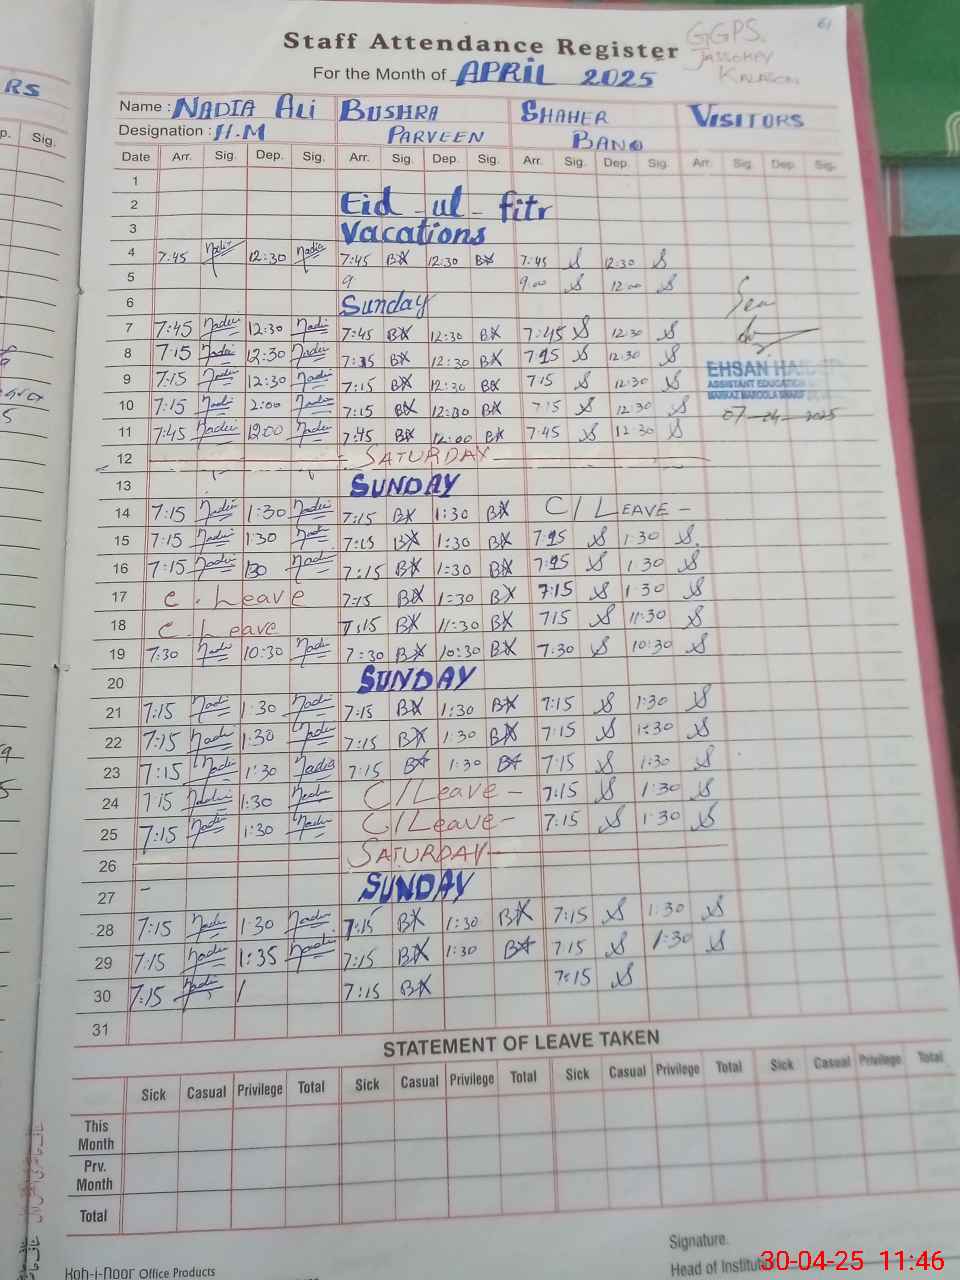 RS
p. Sig.
61
GGPS.
Staff Attendance Register
For the Month of APRIL 2025
Name : NADIA ALI BUSHRA SHAHER VISITORS
Designation : H.M PARVEEN BANO
Date Arr. Sig. Dep. Sig. Arr. Sig. Dep. Sig. Arr. Sig. Dep. Sig. Arr. Sig. Dep. Sig.
1
2 Eid - ul - fitr
3 Vacations
4 7:45 Nadia 12:30 Nadia 7:45 12:30 7:45 S 12:30 S
5 9 9.00 S 12.00 S
6 Sunday
7 7:45 Nadia 12:30 Nadia 7:45 12:30 7:45 S 12:30 S
8 7:15 Nadia 12:30 Nadia 12:30 S 12:30 S
9 7:15 Nadia 12:30 Nadia 7:15 12:30 7:15 S 12:30 S
10 7:15 Nadia 2:00 Nadia 7:15 12:30 7:15 S 12:30 S
11 7:45 Nadia 12:00 Nadia 7:45 12:00 7:45 S 12:30 S
EHSAN HAIDER
ASSISTANT EDUCATION
07-04-2025
12 SATURDAY
13 SUNDAY
14 7:15 Nadia 1:30 Nadia 7:15 1:30 C/ LEAVE -
15 7:15 Nadia 1:30 Nadia 7:15 1:30 S 1:30 S
16 7:15 Nadia 130 Nadia 7:15 1:30 S 1:30 S
17 C. Leave 7:15 1:30 7:15 S 1:30 S
18 C. Leave 7:15 11:30 715 S 11:30 S
19 7:30 Nadia 10:30 Nadia 7:30 10:30 7:30 S 10:30 S
20 SUNDAY
21 7:15 Nadia 1:30 Nadia 7:15 1:30 7:15 S 1:30 S
22 7:15 Nadia 1:30 Nadia 7:15 1:30 7:15 S 1:30 S
23 7:15 Nadia 1:30 Nadia 7:15 1:30 7:15 S 1:30 S
24 7:15 Nadia 1:30 Nadia C/Leave - 7:15 S 1:30 S
25 7:15 Nadia 1:30 Nadia C/Leave - 7:15 S 1:30 S
26 SATURDAY
27 - SUNDAY
28 7:15 Nadia 1:30 Nadia 7:15 1:30 7:15 S 1:30 S
29 7:15 Nadia 1:35 Nadia 7:15 1:30 7:15 S 1:30 S
30 7:15 Nadia / 7:15 7:15 S
31
STATEMENT OF LEAVE TAKEN
Sick Casual Privilege Total Sick Casual Privilege Total Sick Casual Privilege Total Sick Casual Privilege Total
This Month
Prv. Month
Total
Koh-i-Noor Office Products
Signature.
Head of Institute
30-04-25 11:46